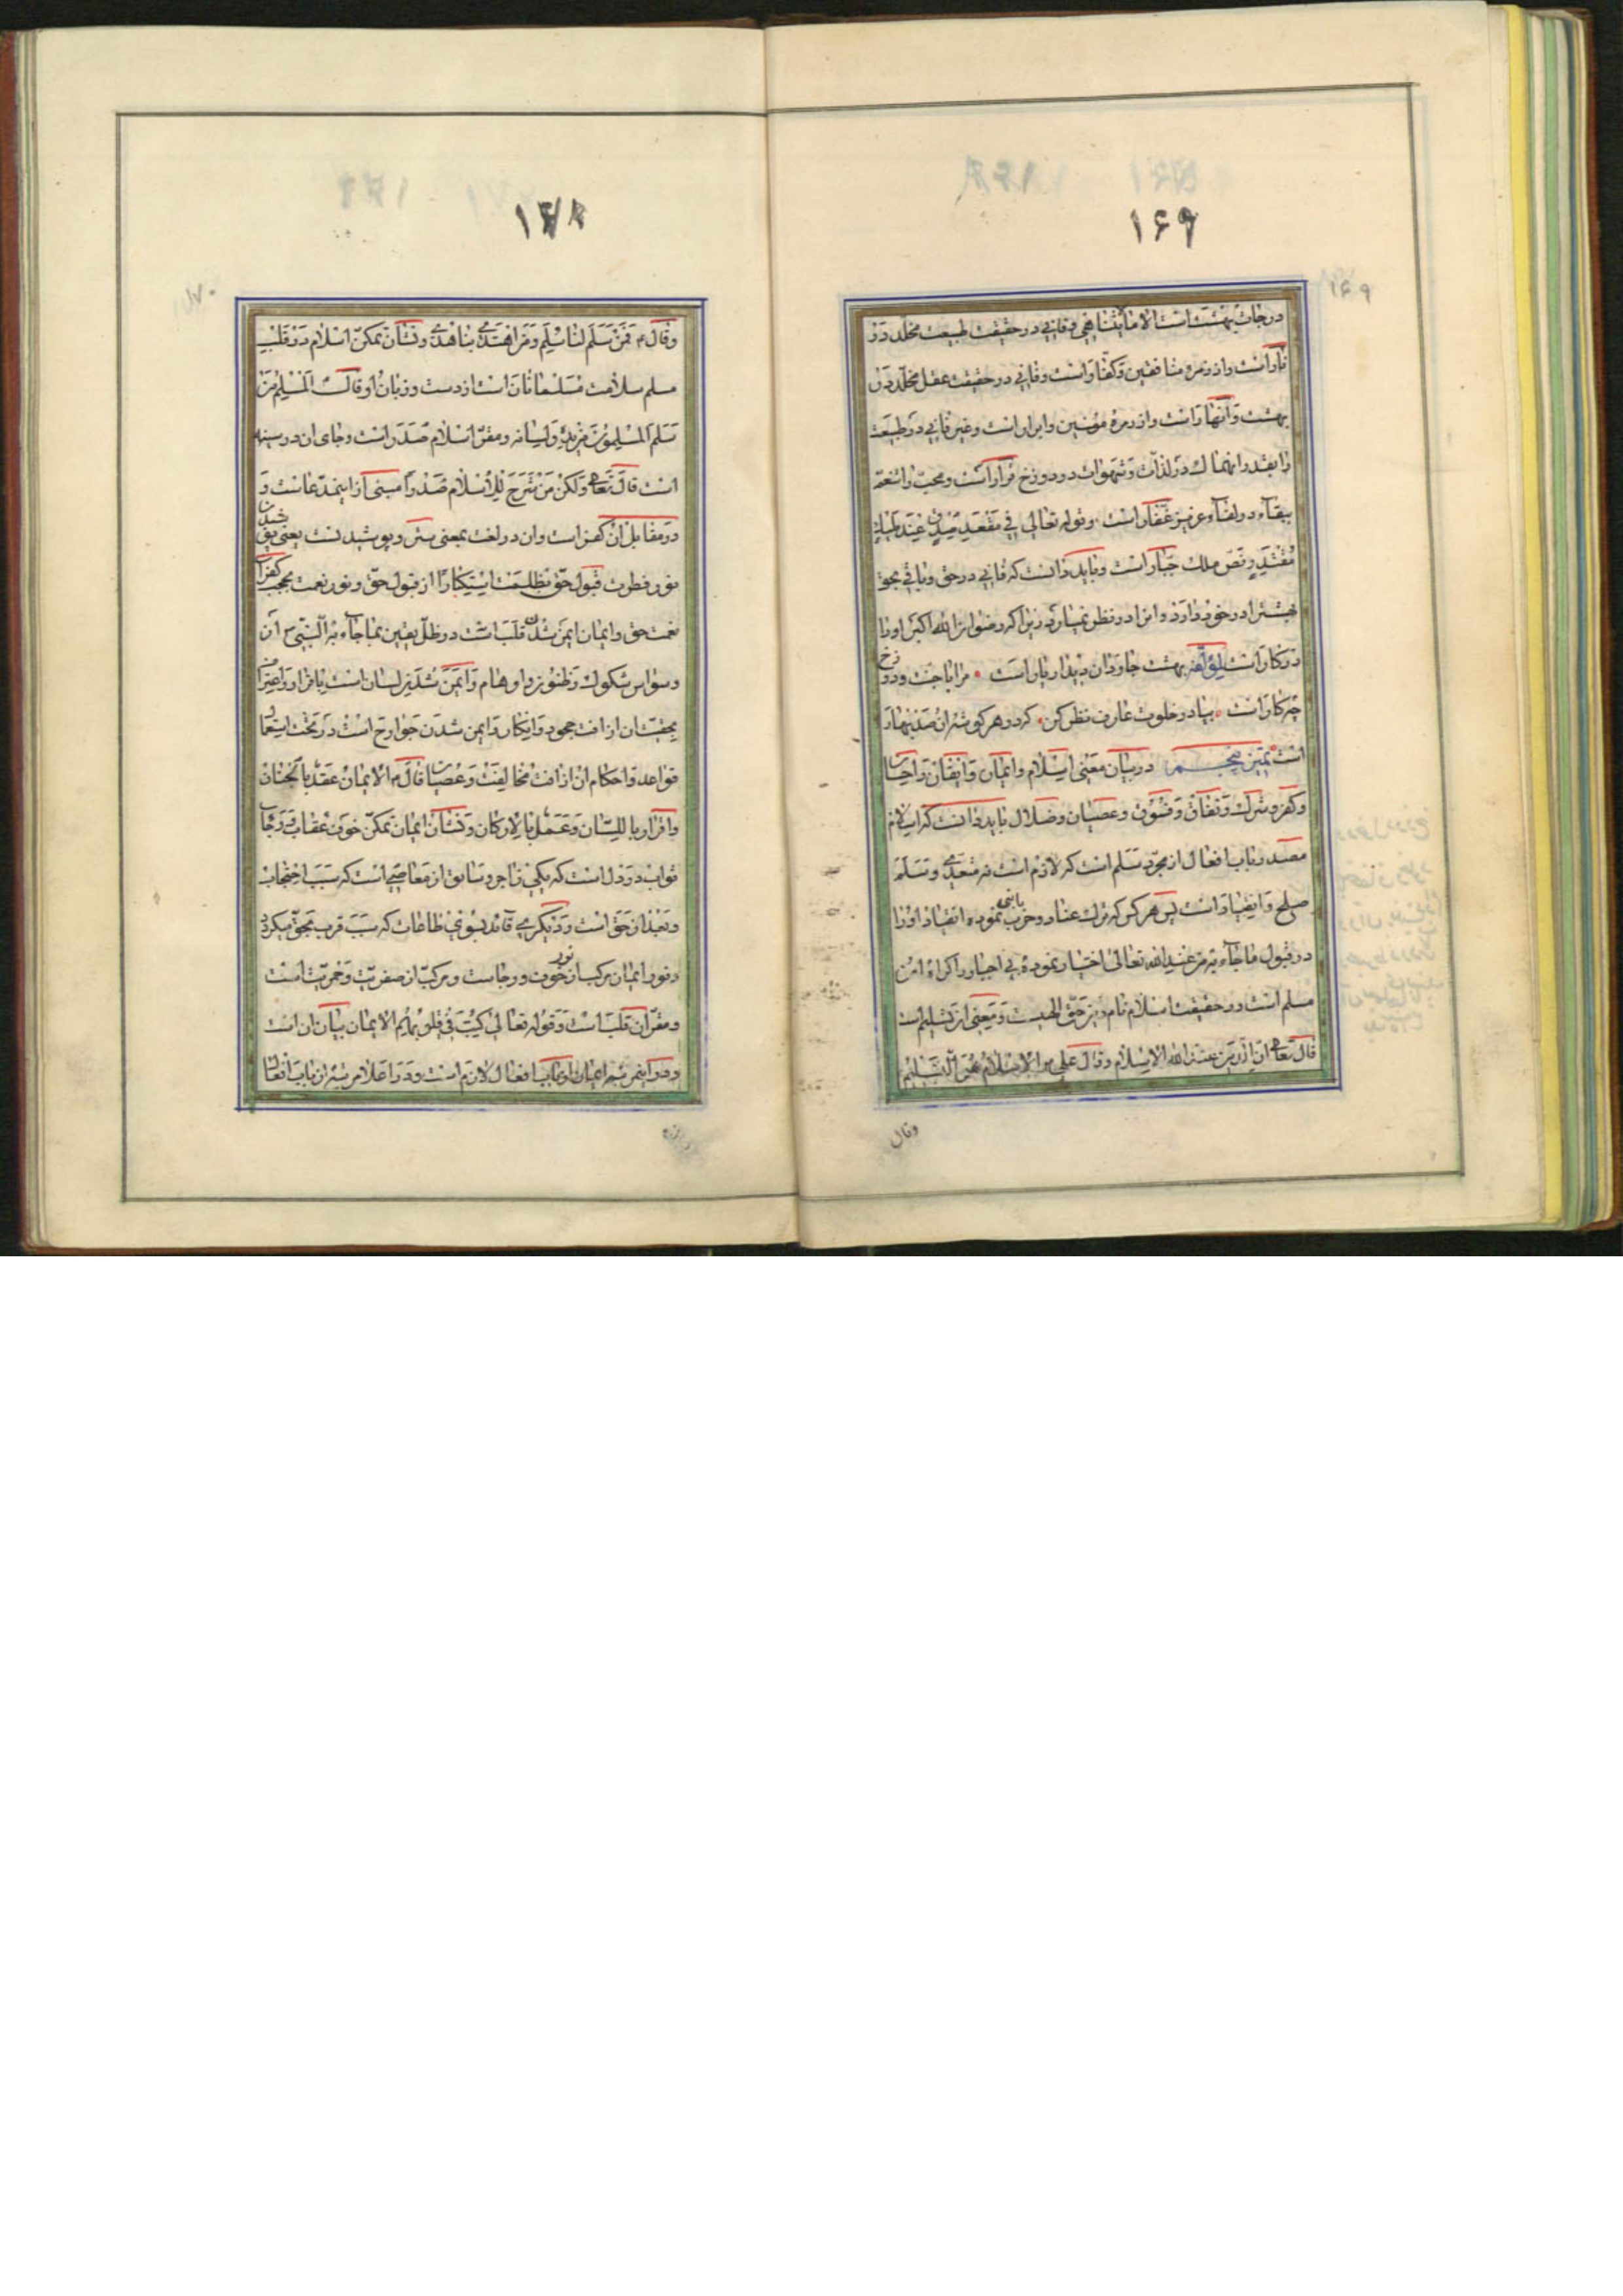 ۱۶۹
درجات بهشت است الا ما یتناهی و فانی در حقیقت طبیعت مخلد در
نار است و از زمره منافقین و کفار است و فانی در حقیقت عقل مخلد در
بهشت و انهار است و از زمره مؤمنین و ابرار است و غیر فانی در طبیعت
را بقدر انهماک در لذات و شهوات در دوزخ قرار است و محب را تنعم
ببقاء در لقاء عزیز غفار است وقوله تعالی فی مقعد صدق عند ملیک
مقتدر نص ملک جبار است و باید دانست که فانی در حق و باقی بحق
بهشت را در خود دارد و انرا در نظر نمیارد زیرا که رضوان من الله اکبر او را
در کار است لمؤلفه بهشت جاودان دیدار یار است مرا با جنت و دوزخ
چه کار است بیا در خلوت عارف نظر کن که در هر گوشه ان صد بهار
است تمییز پنجم در بیان معنی اسلام و ایمان و ایقان و احسان
و کفر و شرک و نفاق و فسوق و عصیان و ضلال باید دانست که اسلام
مصدر باب افعال از مجرد سلم است که لازم است نه متعدی و سلم
صلح و انقیاد است پس هر کس که ترک عناد و حرب با نبی نموده انقیاد او را
در قبول ما جاء به من عند الله تعالی اختیار نموده بی اجبار و اکراه ان
مسلم است و در حقیقت اسلام نام دین حق الهیست و معنی ان تسلیم است
قال تعالی ان الدین عند الله الاسلام و قال علی ع الاسلام هو التسلیم
وقال
۱۶۹
۱۷۰
وقال ع فمن سلم لنا سلم و من اهتدی بنا هدی و نشان تمکن اسلام در قلب
مسلم سلامت مسلمانان است از دست و زبان او قال المسلم من
سلم المسلمون من یده و لسانه و مقر اسلام صدر است و جای ان در سینه
است قال تعالی و لکن من شرح للاسلام صدرا مبنی از اینمدعاست و
در مقابل ان کفر است وان در لغت بمعنی ستر و پوشیدنست یعنی پوشیدن
نور فطرت قبول حق بظلمت استکبار از قبول حق و نور نعمت بحجب کفران
نعمت حق و ایمان ایمن شدن قلب است در ظل یقین بما جاء به النبی ص از
وسواس شکوک و ظنون و اوهام و ایمن شدن لسان است باقرار و اعتراف
بحقیت ان از افت جحود و انکار و ایمن شدن جوارح است در تحت استعمال
قواعد و احکام ان از افت مخالفت و عصیان قال ع الایمان عقد بالجنان
و اقرار باللسان و عمل بالارکان و نشان ایمان تمکن خوف عقاب و رجاء
ثواب در دل است که یکی زاجر و سائق از معاصی است که سبب احتجاب
و بعد از حق است و دیگری قائد بسوی طاعات که سبب قرب بحق میگردد
و نور ایمان مرکب از نور خوف و رجاست و مرکب از صفریت و حمریت است
و مقر ان قلب است و قوله تعالی کتب فی قلوبهم الایمان بیان ان است
و در اینمرتبه ایمان از باب افعال لازم است و در اعلا مرتبه از باب افعال
۱۷۰